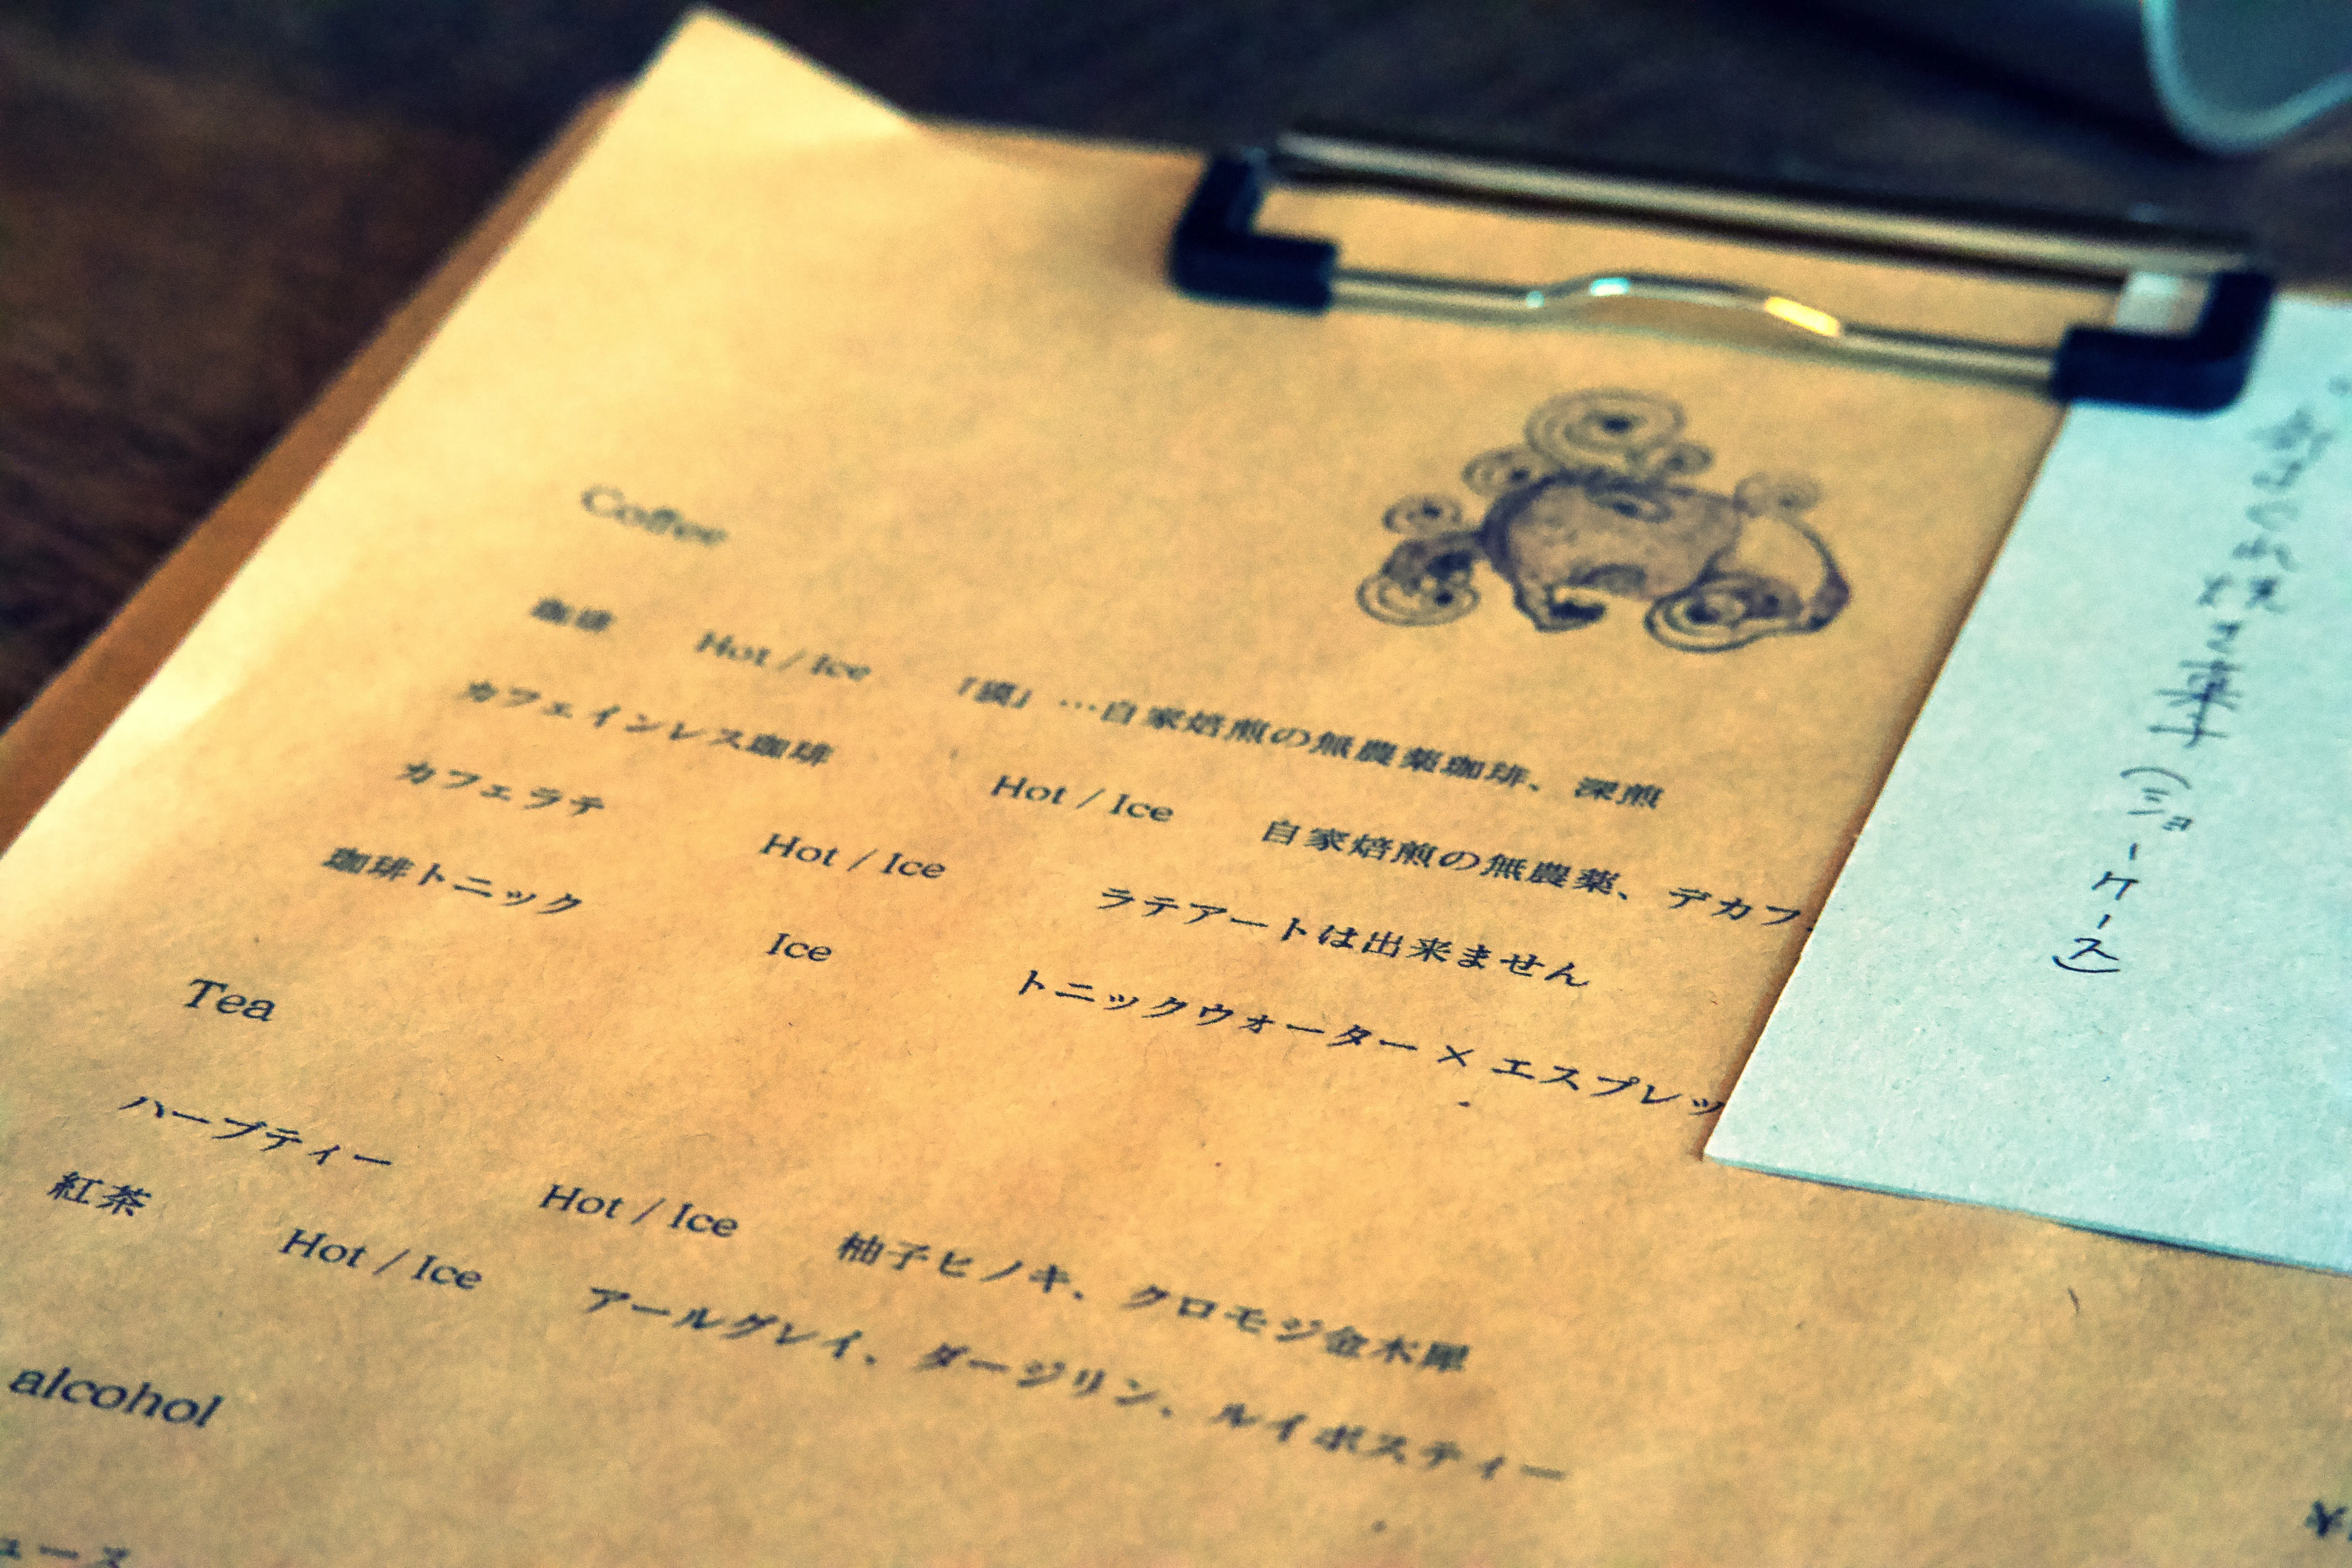 Coffee
珈琲 Hot / Ice 「漠」…自家焙煎の無農薬珈琲、深煎
カフェインレス珈琲 Hot / Ice 自家焙煎の無農薬、デカフ
カフェラテ Hot / Ice ラテアートは出来ません
珈琲トニック Ice トニックウォーター × エスプレッ
Tea
ハーブティー Hot / Ice 柚子ヒノキ、クロモジ金木犀
紅茶 Hot / Ice アールグレイ、ダージリン、ルイボスティー
alcohol
ュース
¥
(ショーケース)